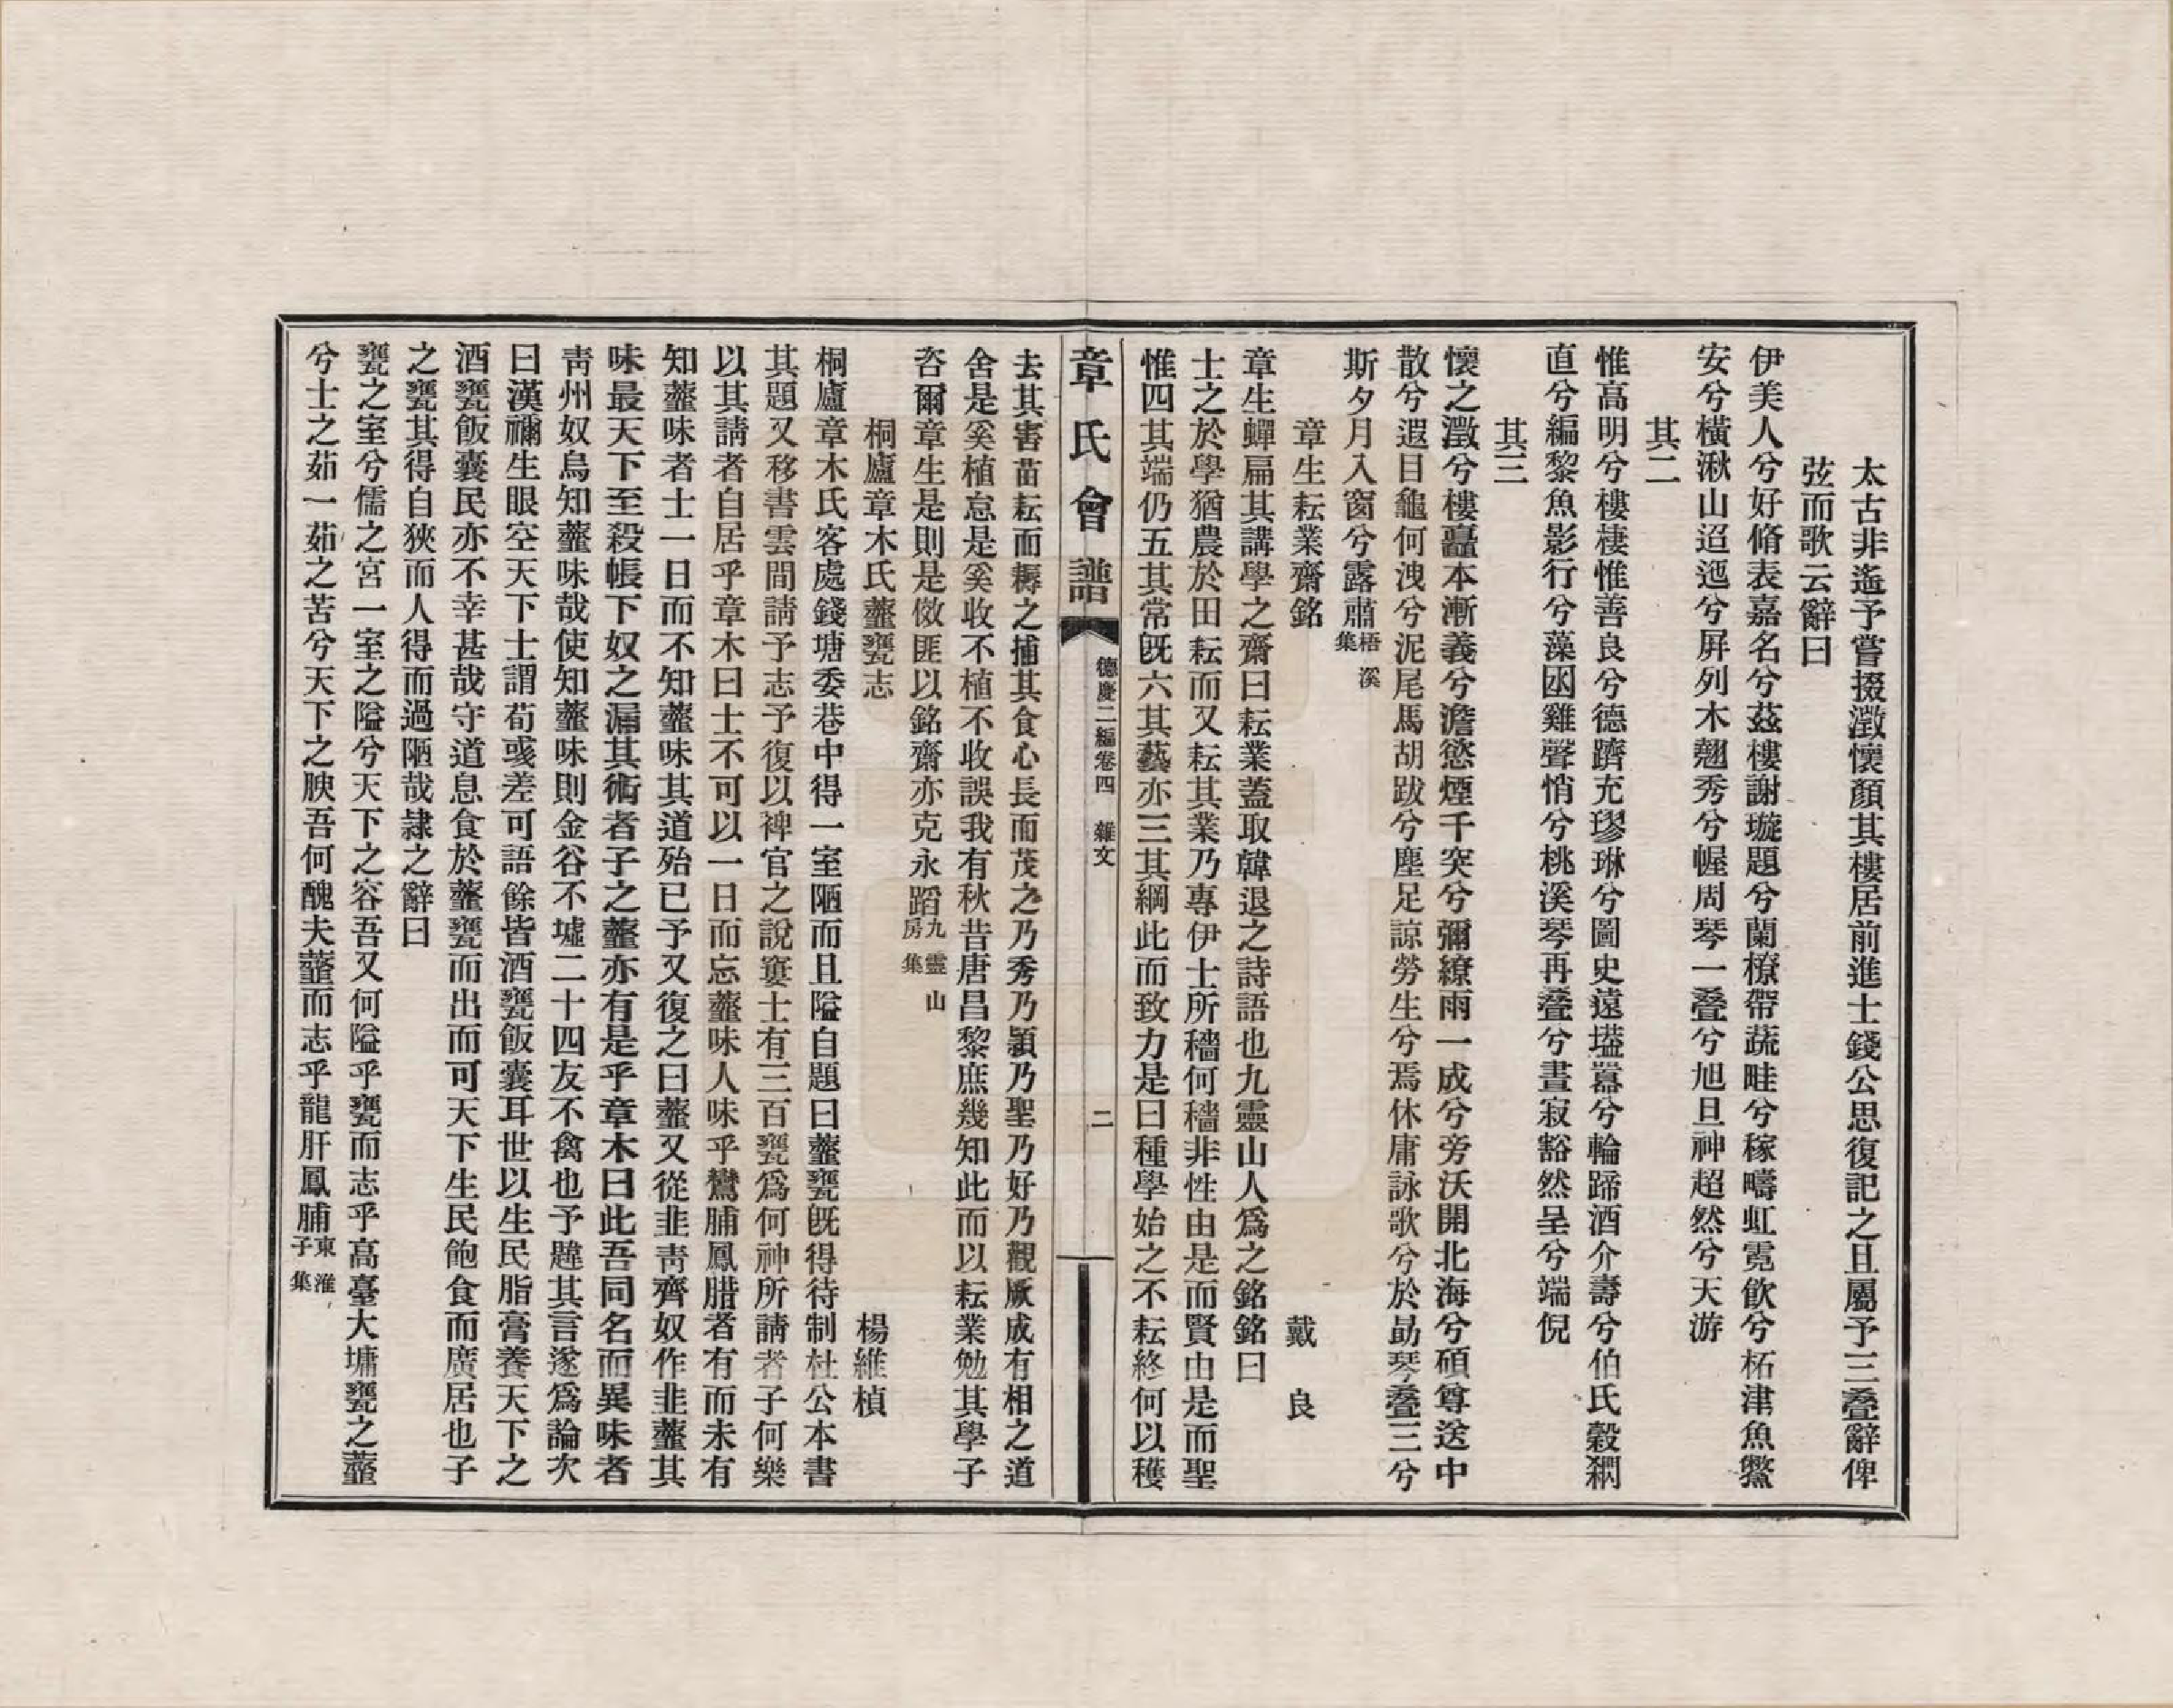 太古非遙予嘗掇澂懷顏其樓居前進士錢公思復記之且屬予三疊辭俾
弦而歌云辭曰
伊美人兮好脩表嘉名兮茲樓謝璇題兮蘭橑帶蔬畦兮稼疇虹霓飲兮柘津魚鱉
安兮橫湫山迢迤兮屏列木翹秀兮幄周琴一疊兮旭旦神超然兮天游
其二
惟高明兮樓棲惟善良兮德躋充璆琳兮圖史遠壒囂兮輪蹄酒介壽兮伯氏穀
直兮編黎魚影行兮藻囦雞聲悄兮桃溪琴再疊兮晝寂豁然呈兮端倪
其三
懷之澂兮樓矗本漸義兮澹慾煙千突兮彌繚雨一成兮旁沃開北海兮碩尊送中
散兮遐目龜何洩兮泥尾馬胡跋兮塵足諒勞生兮焉休庸詠歌兮於勗琴疊三兮
斯夕月入窗兮露肅梧溪集
章生耘業齋銘 戴良
章生蟬扁其講學之齋曰耘業蓋取韓退之詩語也九靈山人爲之銘銘曰
士之於學猶農於田耘而又耘其業乃專伊士所穡何穡非性由是而賢由是而聖
惟四其端仍五其常旣六其藝亦三其綱此而致力是曰種學始之不耘終何以穫
章氏會譜 德慶二編卷四 雜文 二
去其害苗耘而耨之捕其食心長而茂之乃秀乃穎乃聖乃好乃觀厥成有相之道
舍是奚植怠是奚收不植不收誤我有秋昔唐昌黎庶幾知此而以耘業勉其學子
咨爾章生是則是傚匪以銘齋亦克永蹈九靈山房集
桐廬章木氏虀甕志 楊維楨
桐廬章木氏客處錢塘委巷中得一室陋而且隘自題曰虀甕旣得待制杜公本書
其題又移書雲間請予志予復以裨官之說窶士有三百甕爲何神所請者子何樂
以其請者自居乎章木曰士不可以一日而忘虀味人味乎鸞脯鳳腊者有而未有
知虀味者士一日而不知虀味其道殆已予又復之曰虀又從韭靑齊奴作韭虀其
味最天下至殺帳下奴之漏其術者子之虀亦有是乎章木曰此吾同名而異味者
靑州奴烏知虀味哉使知虀味則金谷不墟二十四友不禽也予韙其言遂爲論次
曰漢禰生眼空天下士謂荀彧差可語餘皆酒甕飯囊耳世以生民脂膏養天下之
酒甕飯囊民亦不幸甚哉守道息食於虀甕而出而可天下生民飽食而廣居也子
之甕其得自狹而人得而過陋哉隷之辭曰
甕之室兮儒之宮一室之隘兮天下之容吾又何隘乎甕而志乎高臺大墉甕之虀
兮士之茹一茹之苦兮天下之腴吾何醜夫虀而志乎龍肝鳳脯東淮子集